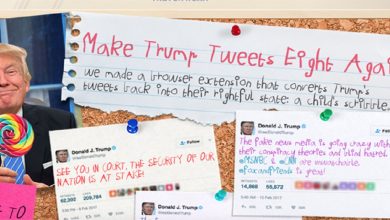 Make Trump Tweets Eight Again
we made a browser extension that converts Trump's
tweets back into their rightful state: a child's scribble.
Donald J. Trump
@realDonaldTrump
Follow
SEE YOU IN COURT, THE SECURITY OF OUR
NATION IS AT STAKE!
62,392 209,784
Donald J. Trump
@realDonaldTrump
Follow
The fake news media is going crazy with
their conspiracy theories and blind hatred.
@MSNBC & @CNN are unwatchable.
@foxandfriends is great!
14,868 55,672
Donald J. Trump
@realDonaldTrump
E TO